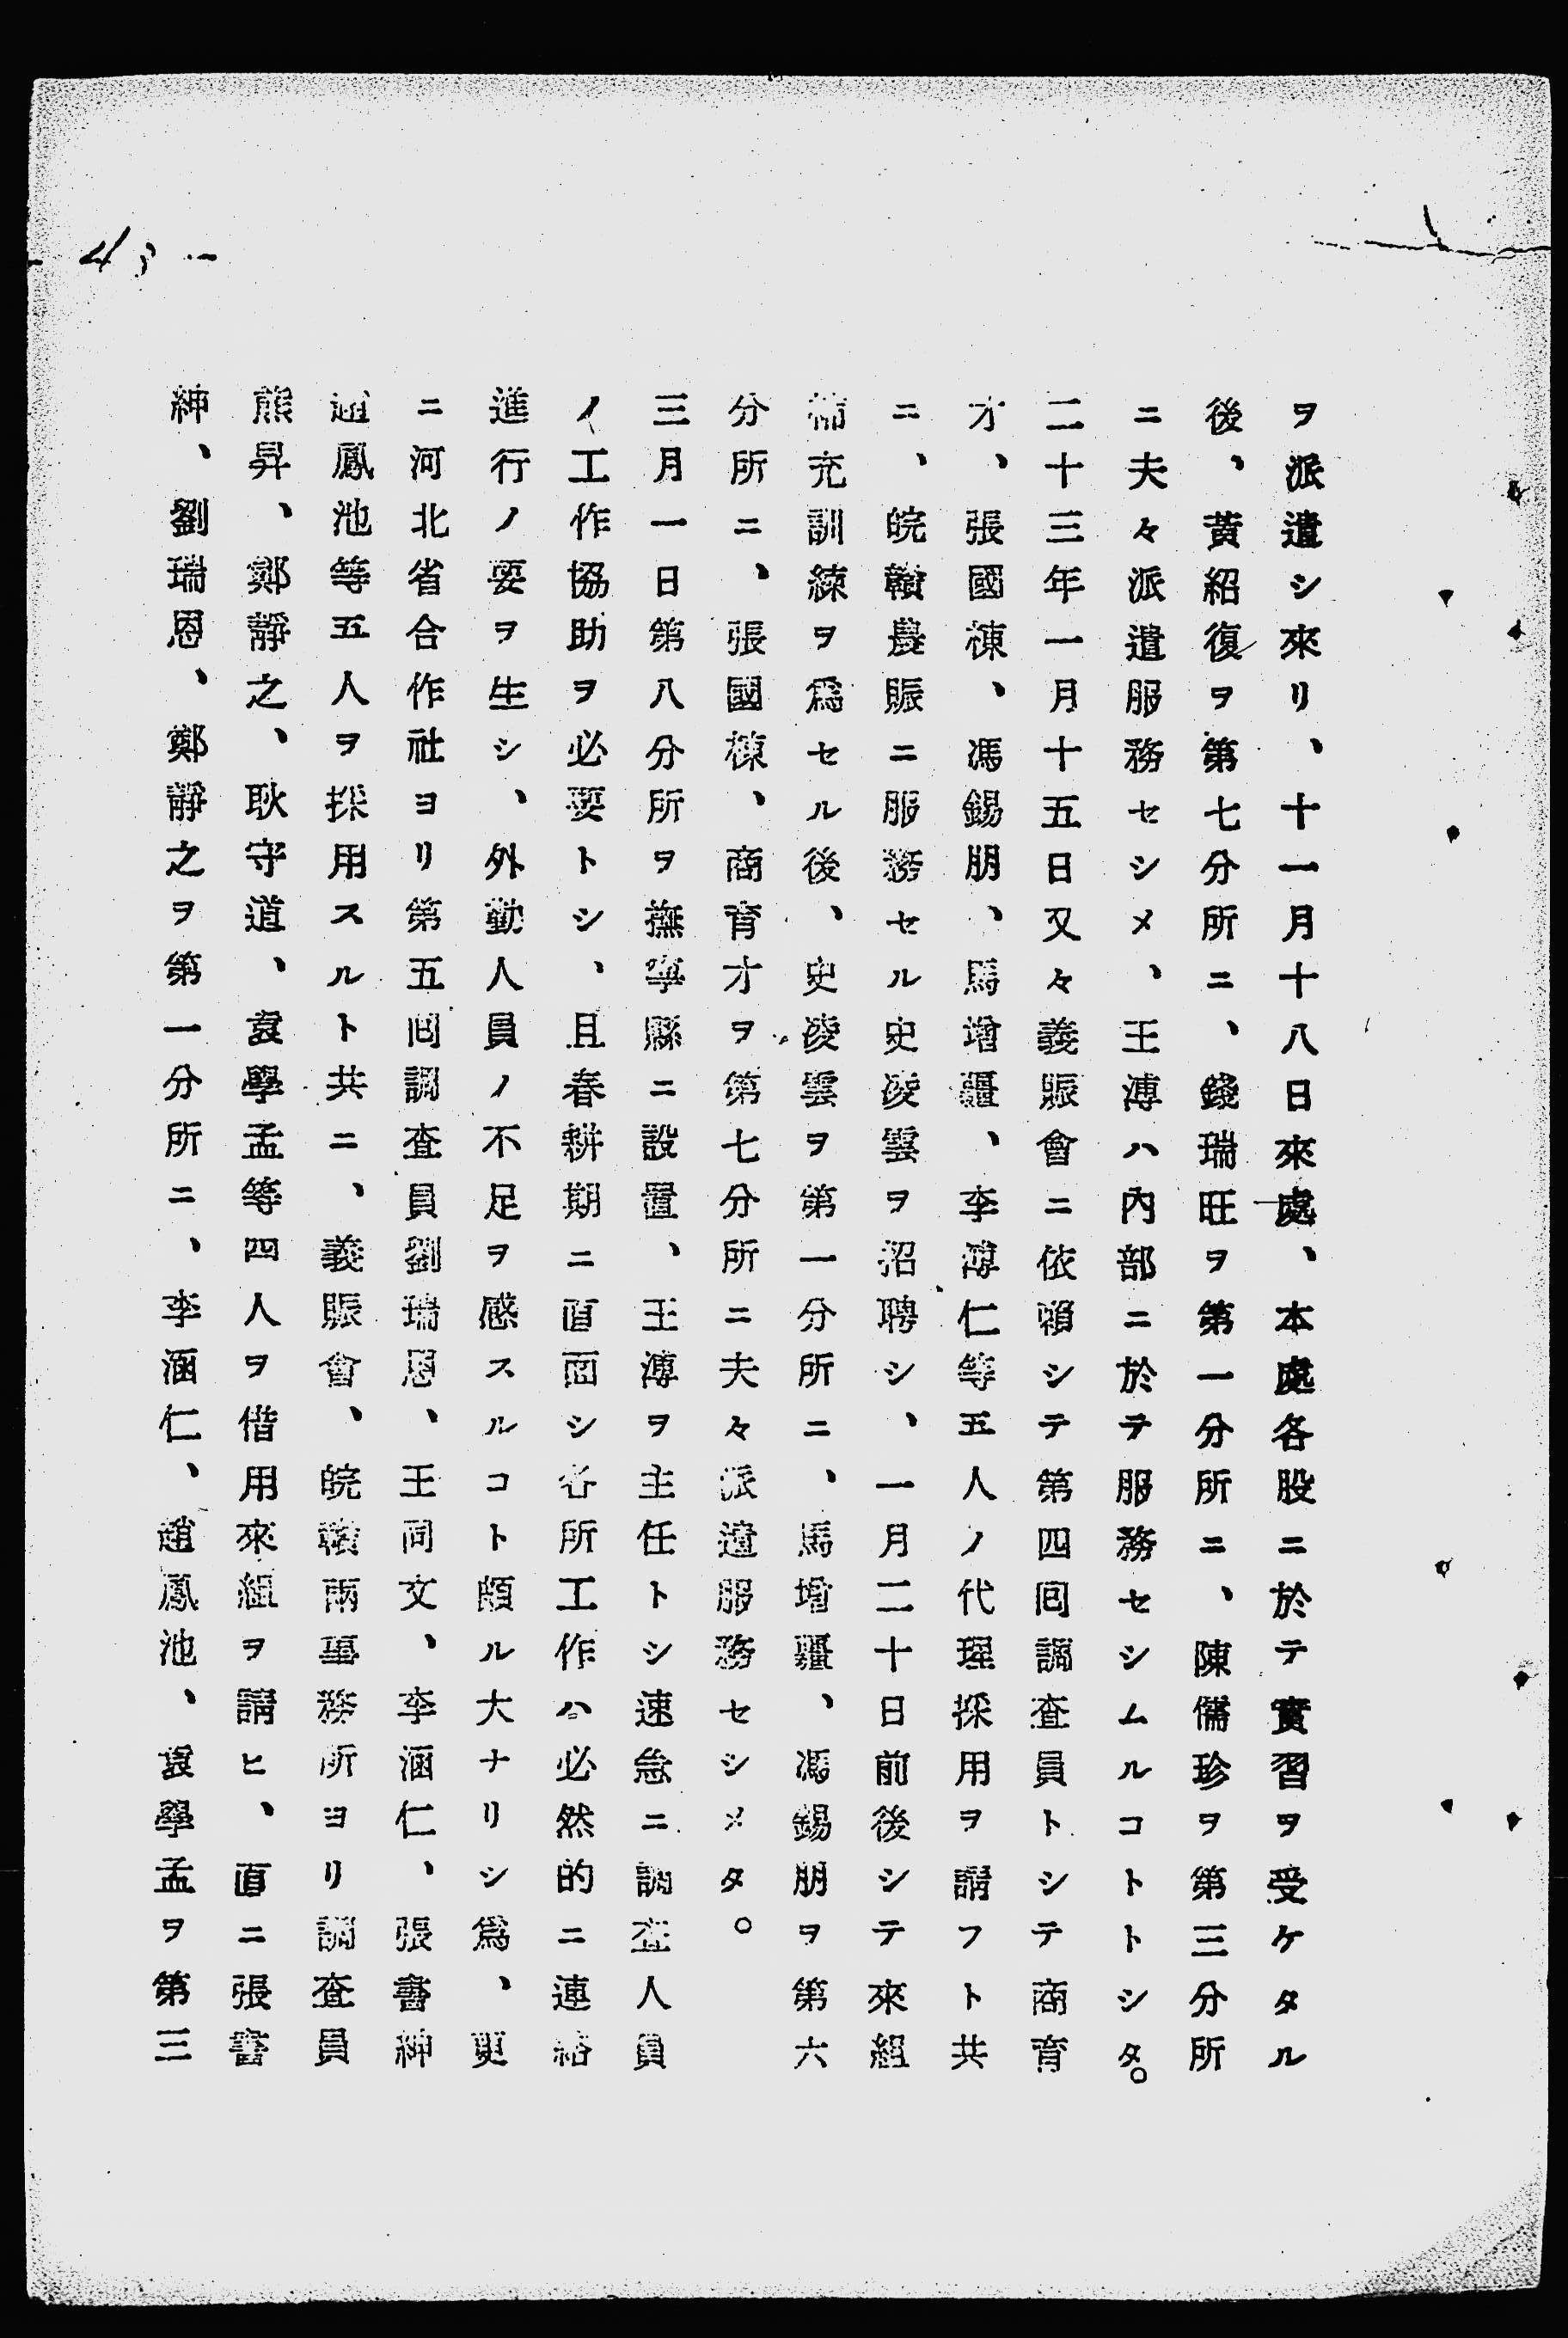 43-
ヲ派遣シ來リ、十一月十八日來處、本處各股ニ於テ實習ヲ受ケタル
後、黄紹復ヲ第七分所ニ、錢瑞旺ヲ第一分所ニ、陳儒珍ヲ第三分所
ニ夫々派遣服務セシメ、王溥ハ内部ニ於テ服務セシムルコトトシタ。
二十三年一月十五日又々義賑會ニ依賴シテ第四囘調査員トシテ商育
才、張國棟、馮錫朋、馬增疆、李溥仁等五人ノ代理採用ヲ請フト共
ニ、皖贛農賑ニ服務セル史凌雲ヲ沼聘シ、一月二十日前後シテ來組
補充訓練ヲ爲セル後、史凌雲ヲ第一分所ニ、馬增疆、馮錫朋ヲ第六
分所ニ、張國棟、商育才ヲ第七分所ニ夫々派遣服務セシメタ。
三月一日第八分所ヲ撫寧縣ニ設置、王溥ヲ主任トシ速急ニ調査人員
ノ工作協助ヲ必要トシ、且春耕期ニ直面シ各所工作ハ必然的ニ連絡
進行ノ要ヲ生シ、外勤人員ノ不足ヲ感スルコト頗ル大ナリシ爲、更
ニ河北省合作社ヨリ第五囘調査員劉瑞恩、王同文、李涵仁、張書紳
趙鳳池等五人ヲ採用スルト共ニ、義賑會、皖贛兩事務所ヨリ調査員
熊昇、鄭靜之、耿守道、袁學孟等四人ヲ借用來組ヲ請ヒ、直ニ張書
紳、劉瑞恩、鄭靜之ヲ第一分所ニ、李涵仁、趙鳳池、袁學孟ヲ第三